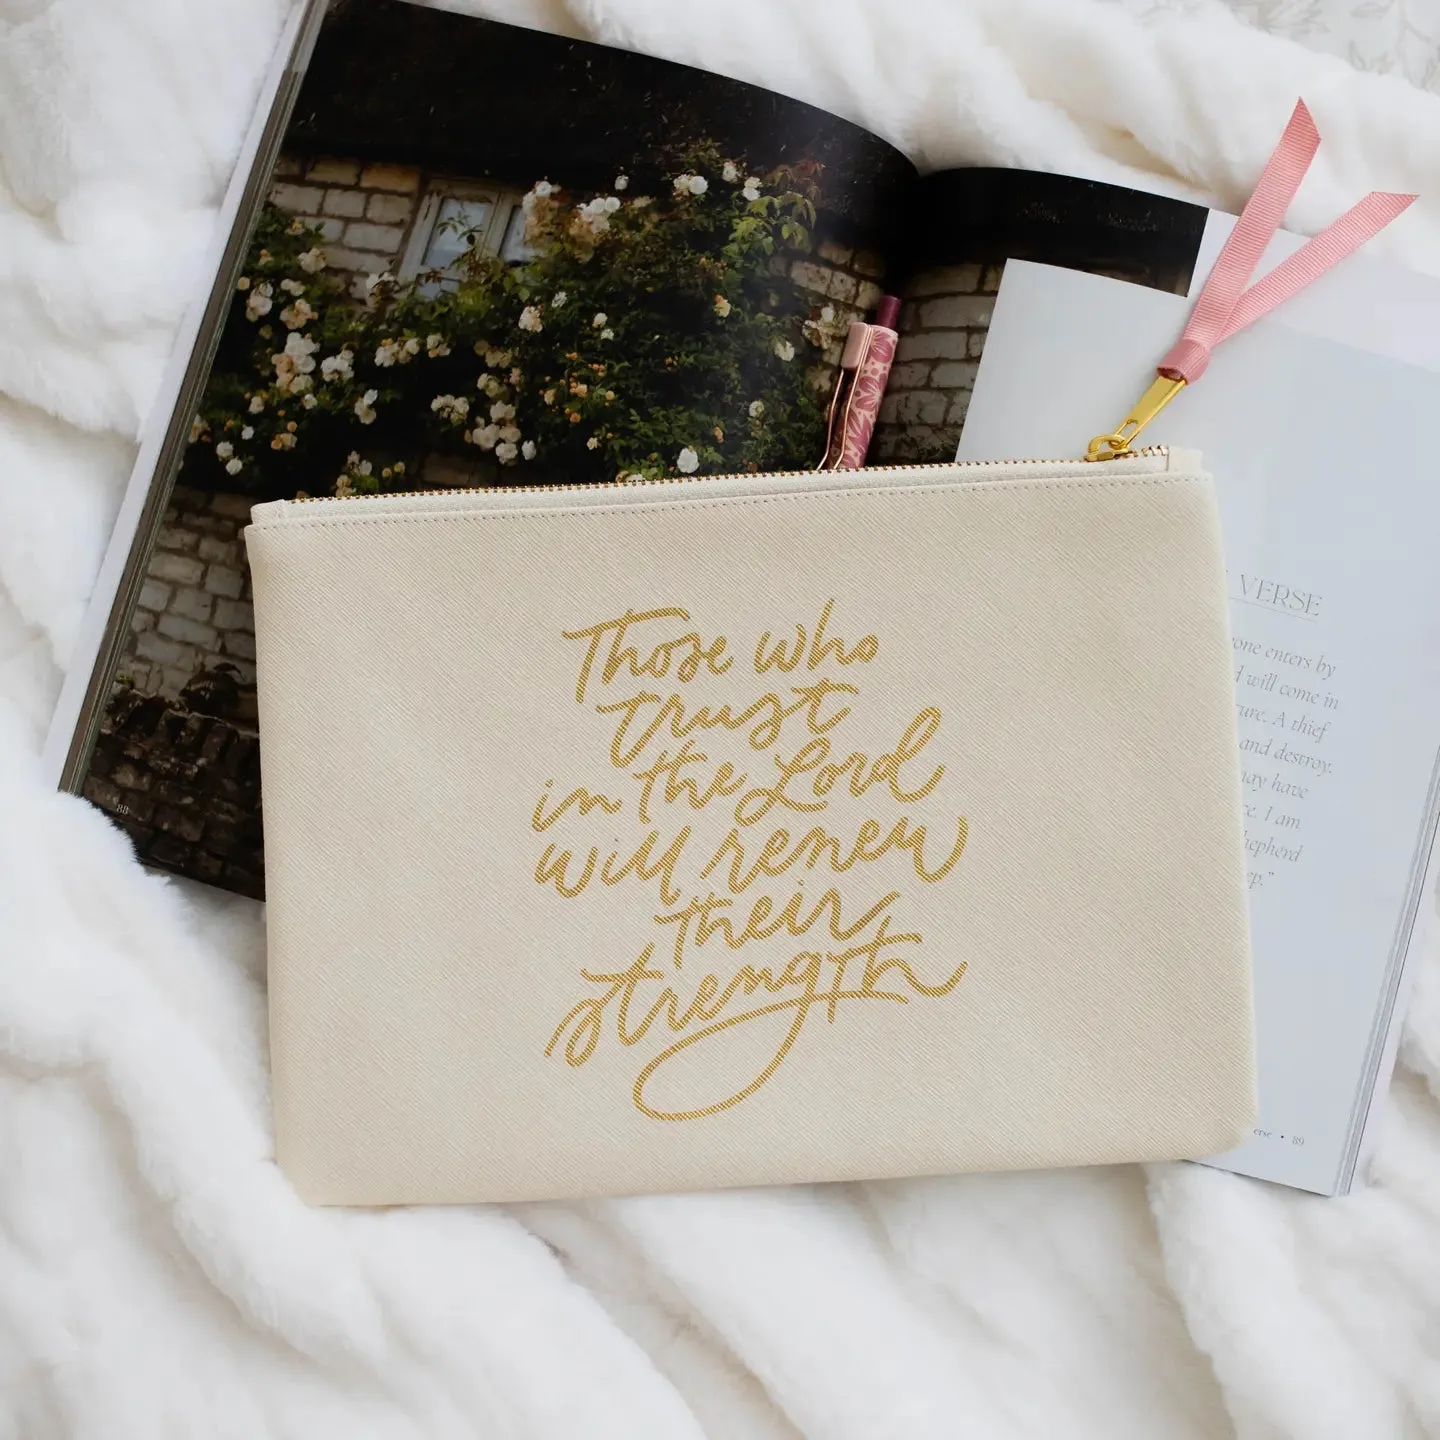 Those who
trust
in the Lord
will renew
their
strength
88
VERSE
one enters by
will come in
A thief
and destroy.
may have
I am
89